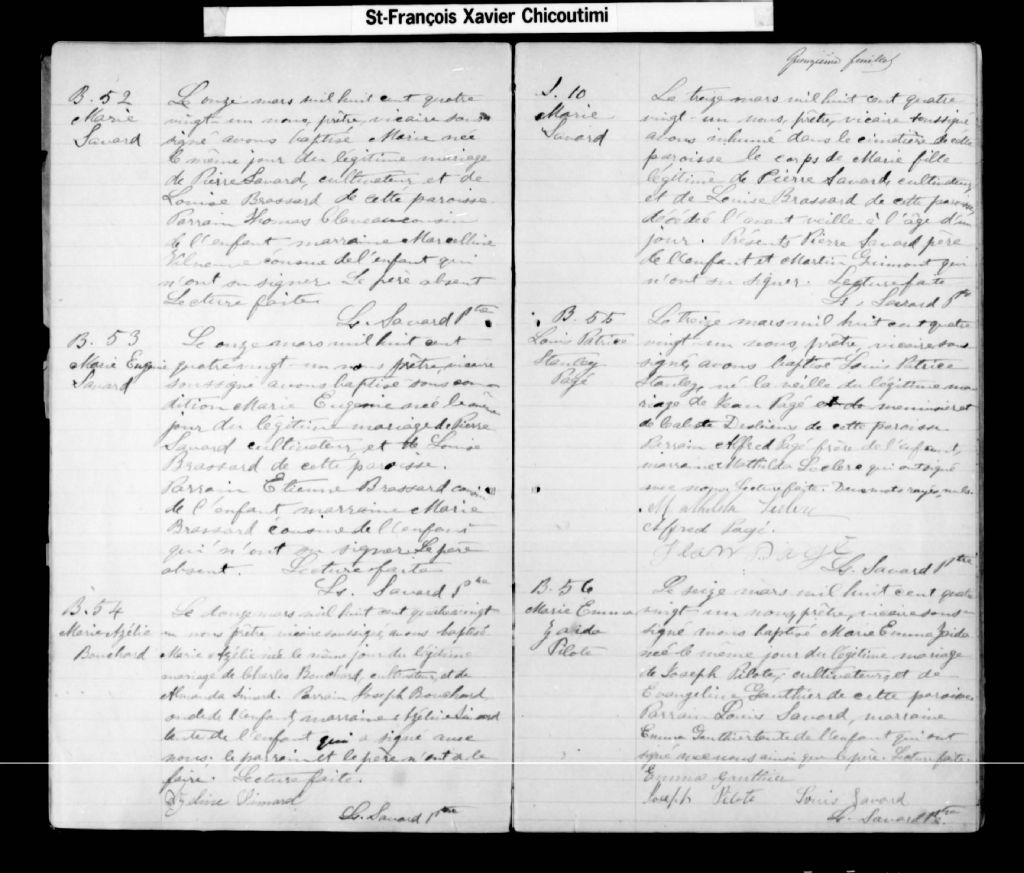 St-François Xavier Chicoutimi
B. 52
Marie
Savard
Le onze mars mil huit cent quatre
vingt-un nous, prêtre, vicaire sous
signé avons baptisé Marie née
le même jour du légitime mariage
de Pierre Savard, cultivateur et de
Louise Brassard de cette paroisse.
Parrain Thomas Claveau cousin
de l'enfant marraine Marcelline
Vilneuve cousine de l'enfant qui
n'ont su signer. Le père absent
Lecture faite.
Ls. Savard Ptre
B. 53
Marie Eugénie
Savard
Le onze mars mil huit cent
quatre vingt un nous prêtre, vicaire
soussigné avons baptisé sous con-
dition Marie Eugenie née le même
jour du légitime mariage de Pierre
Savard cultivateur et de Louise
Brassard de cette paroisse.
Parrain Etienne Brassard cousin
de l'enfant marraine Marie
Brassard cousine de l'enfant
qui n'ont su signer. Le père
absent. Lecture faite
Ls. Savard Ptre
B. 54
Marie Azélie
Bouchard
Le douze mars mil huit cent quatre vingt
un nous prêtre vicaire soussigné, avons baptisé
Marie Azélie née le même jour du légitime
mariage de Charles Bouchard, cultivateur, et de
Simard. Parrain Joseph Bouchard
oncle de l'enfant, marraine Azéline Simard
tante de l'enfant qui a signé avec
nous; le parrain et le père n'ont su le
faire. Lecture faite.
Azéline Simard
Ls. Savard Ptre
Quinzième feuillet
S. 10
Marie
Savard
Le treize mars mil huit cent quatre
vingt-un nous, prêtre, vicaire soussigné
avons inhumé dans le cimetière de cette
paroisse le corps de Marie fille
légitime de Pierre Savard, cultivateur,
et de Louise Brassard de cette paroisse,
décédée l'avant veille à l'âge d'un
jour. Présents Pierre Savard père
de l'enfant et Martin Guimont qui
n'ont su signer. Lecture faite
Ls. Savard Ptre
B. 55
Louis Patrice
Stanley
Pagé
Le treize mars mil huit cent quatre
vingt-un nous, prêtre, vicaire sous
signé, avons baptisé Louis Patrice
Stanley, né la veille du légitime ma
riage de Jean Pagé et de menuisier et
de Calixte Desbiens de cette paroisse
Parrain Alfred Pagé frère de l'enfant,
marraine Mathilda Leclerc qui ont signé
avec nous. Lecture faite. Deux mots rayés nuls.
Mathilda Leclerc
Alfred Pagé.
Jean Pagé
Ls. Savard Ptre
B. 56
Marie Emma
Zaida
Pilote
Le seize mars mil huit cent quatre
vingt-un nous, prêtre, vicaire sous-
signé avons baptisé Marie Emma Zaida
née le même jour du légitime mariage
de Joseph Pilote, cultivateur, et de
Evangeline Gauthier de cette paroisse
Parrain Louis Savard, marraine
Emma Gauthier tante de l'enfant qui ont
signé avec nous ainsi que le père. Lecture faite.
Emma Gauthier
Joseph Pilote Louis Savard
Ls. Savard Ptre.